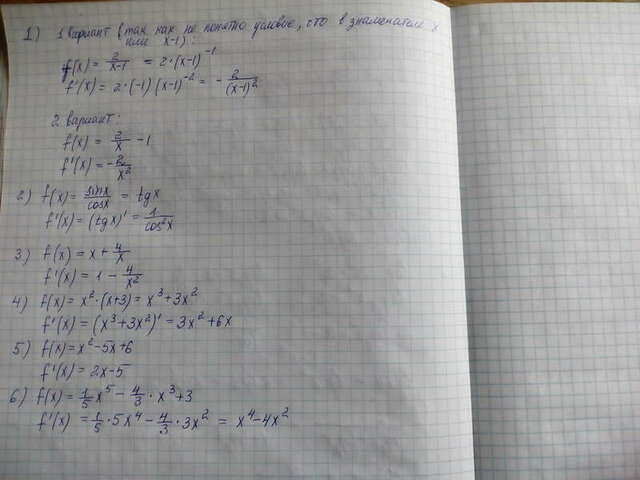 1) 1 вариант (так как не понятно условие, что в знаменателе x
или x-1):
f(x) = 2/(x-1) = 2·(x-1)^-1
f'(x) = 2·(-1)(x-1)^-2 = - 2/(x-1)^2
2 вариант:
f(x) = 2/x - 1
f'(x) = - 2/x^2
2) f(x) = sinx/cosx = tgx
f'(x) = (tgx)' = 1/cos^2x
3) f(x) = x + 4/x
f'(x) = 1 - 4/x^2
4) f(x) = x^2·(x+3) = x^3+3x^2
f'(x) = (x^3+3x^2)' = 3x^2+6x
5) f(x) = x^2-5x+6
f'(x) = 2x-5
6) f(x) = 1/5 x^5 - 4/3 · x^3+3
f'(x) = 1/5 · 5x^4 - 4/3 · 3x^2 = x^4-4x^2